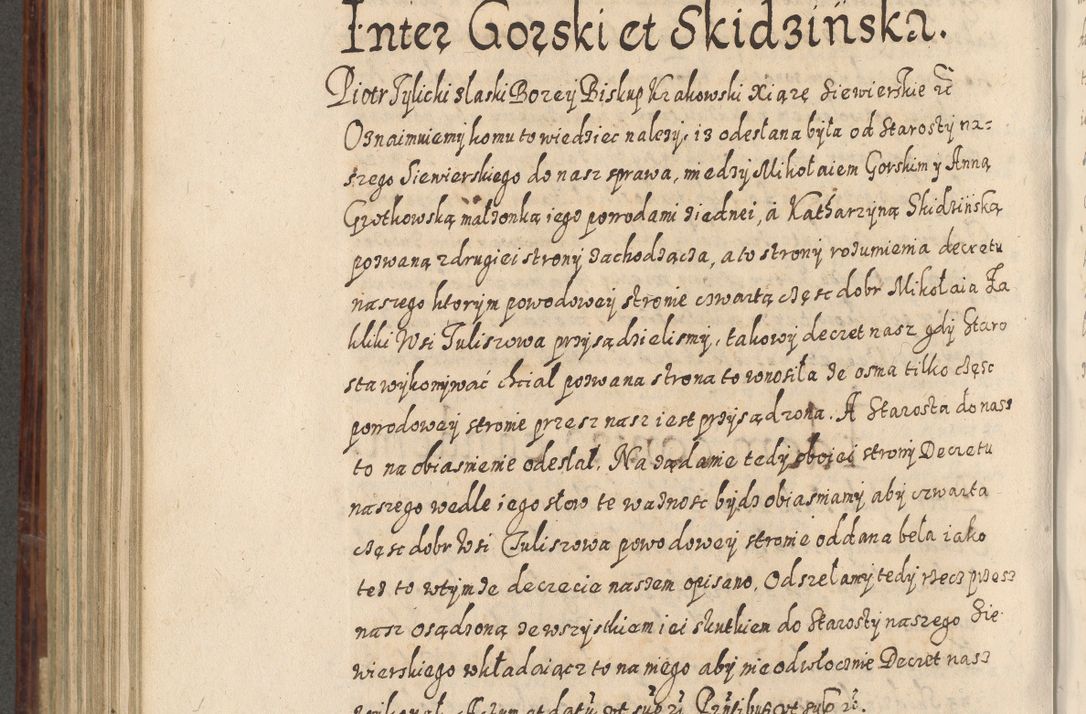 Inter Gorski et Skidziński.
Piotr Tylicki zlaski Bozey Biskup Krakowski Xiąze Siewierskie etc
Oznaimuiemy komu to wiedziec nalezy, iz odeslana była od Starosty na=
szego Siewierskiego do nasz sprawa, miedzy Mikołaiem Gorskim y Anną
Grotkowską małzonką iego powodami ziednei, á Katharzyną Skidzinską
pozwaną z drugiei strony zachodząca, a to strony rozumienia decretu
naszego ktorym powodowey stronie czwartą część dobr Mikołaia Za
kliki Wsi Tuliszowa przysądzielismy, takowy decret nasz gdy Staro
sta wykonywać chciał pozwana strona to wnosiła ze osma tilko część
powodowey stronie przesz nasz iest przysądzona. A Starosta do nasz
to na obiasnienie odeslał. Na ządanie tedy oboiei strony Decretu
naszego wedle iego słow te waznosc bydz obiasniamy aby czwarta
część dobr Wsi Tuliszowa powodowey stronie oddana beła iako
tez to wtymze decrecie naszem opisano. Odszełamy tedy rzecz przesz
nasz osądzoną ze wszystkiem iei skutkiem do Starosty naszego Sie
wierskiego wkładaiącz to na niego aby nie odwłocznie Decret nasz
wikonał. Actum et datũ ut supra Pñtibus ut supra.